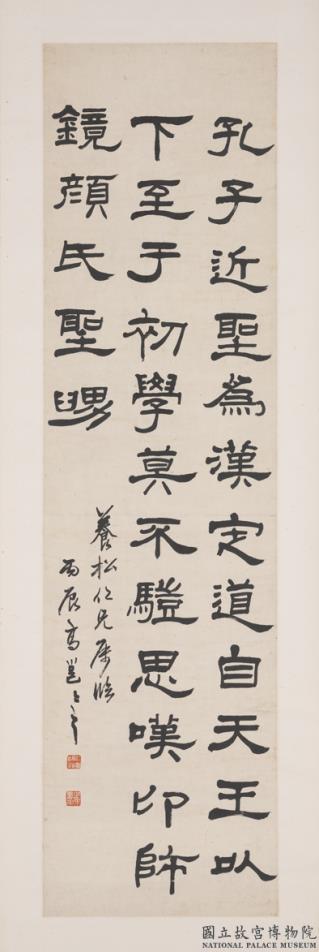 孔子近聖為漢定道自天王以
下至于初學莫不驖思嘆卬師
鏡顏氏聖舅
養松仁兄屬臨
丙辰高邕之
國立故宮博物院
NATIONAL PALACE MUSEUM